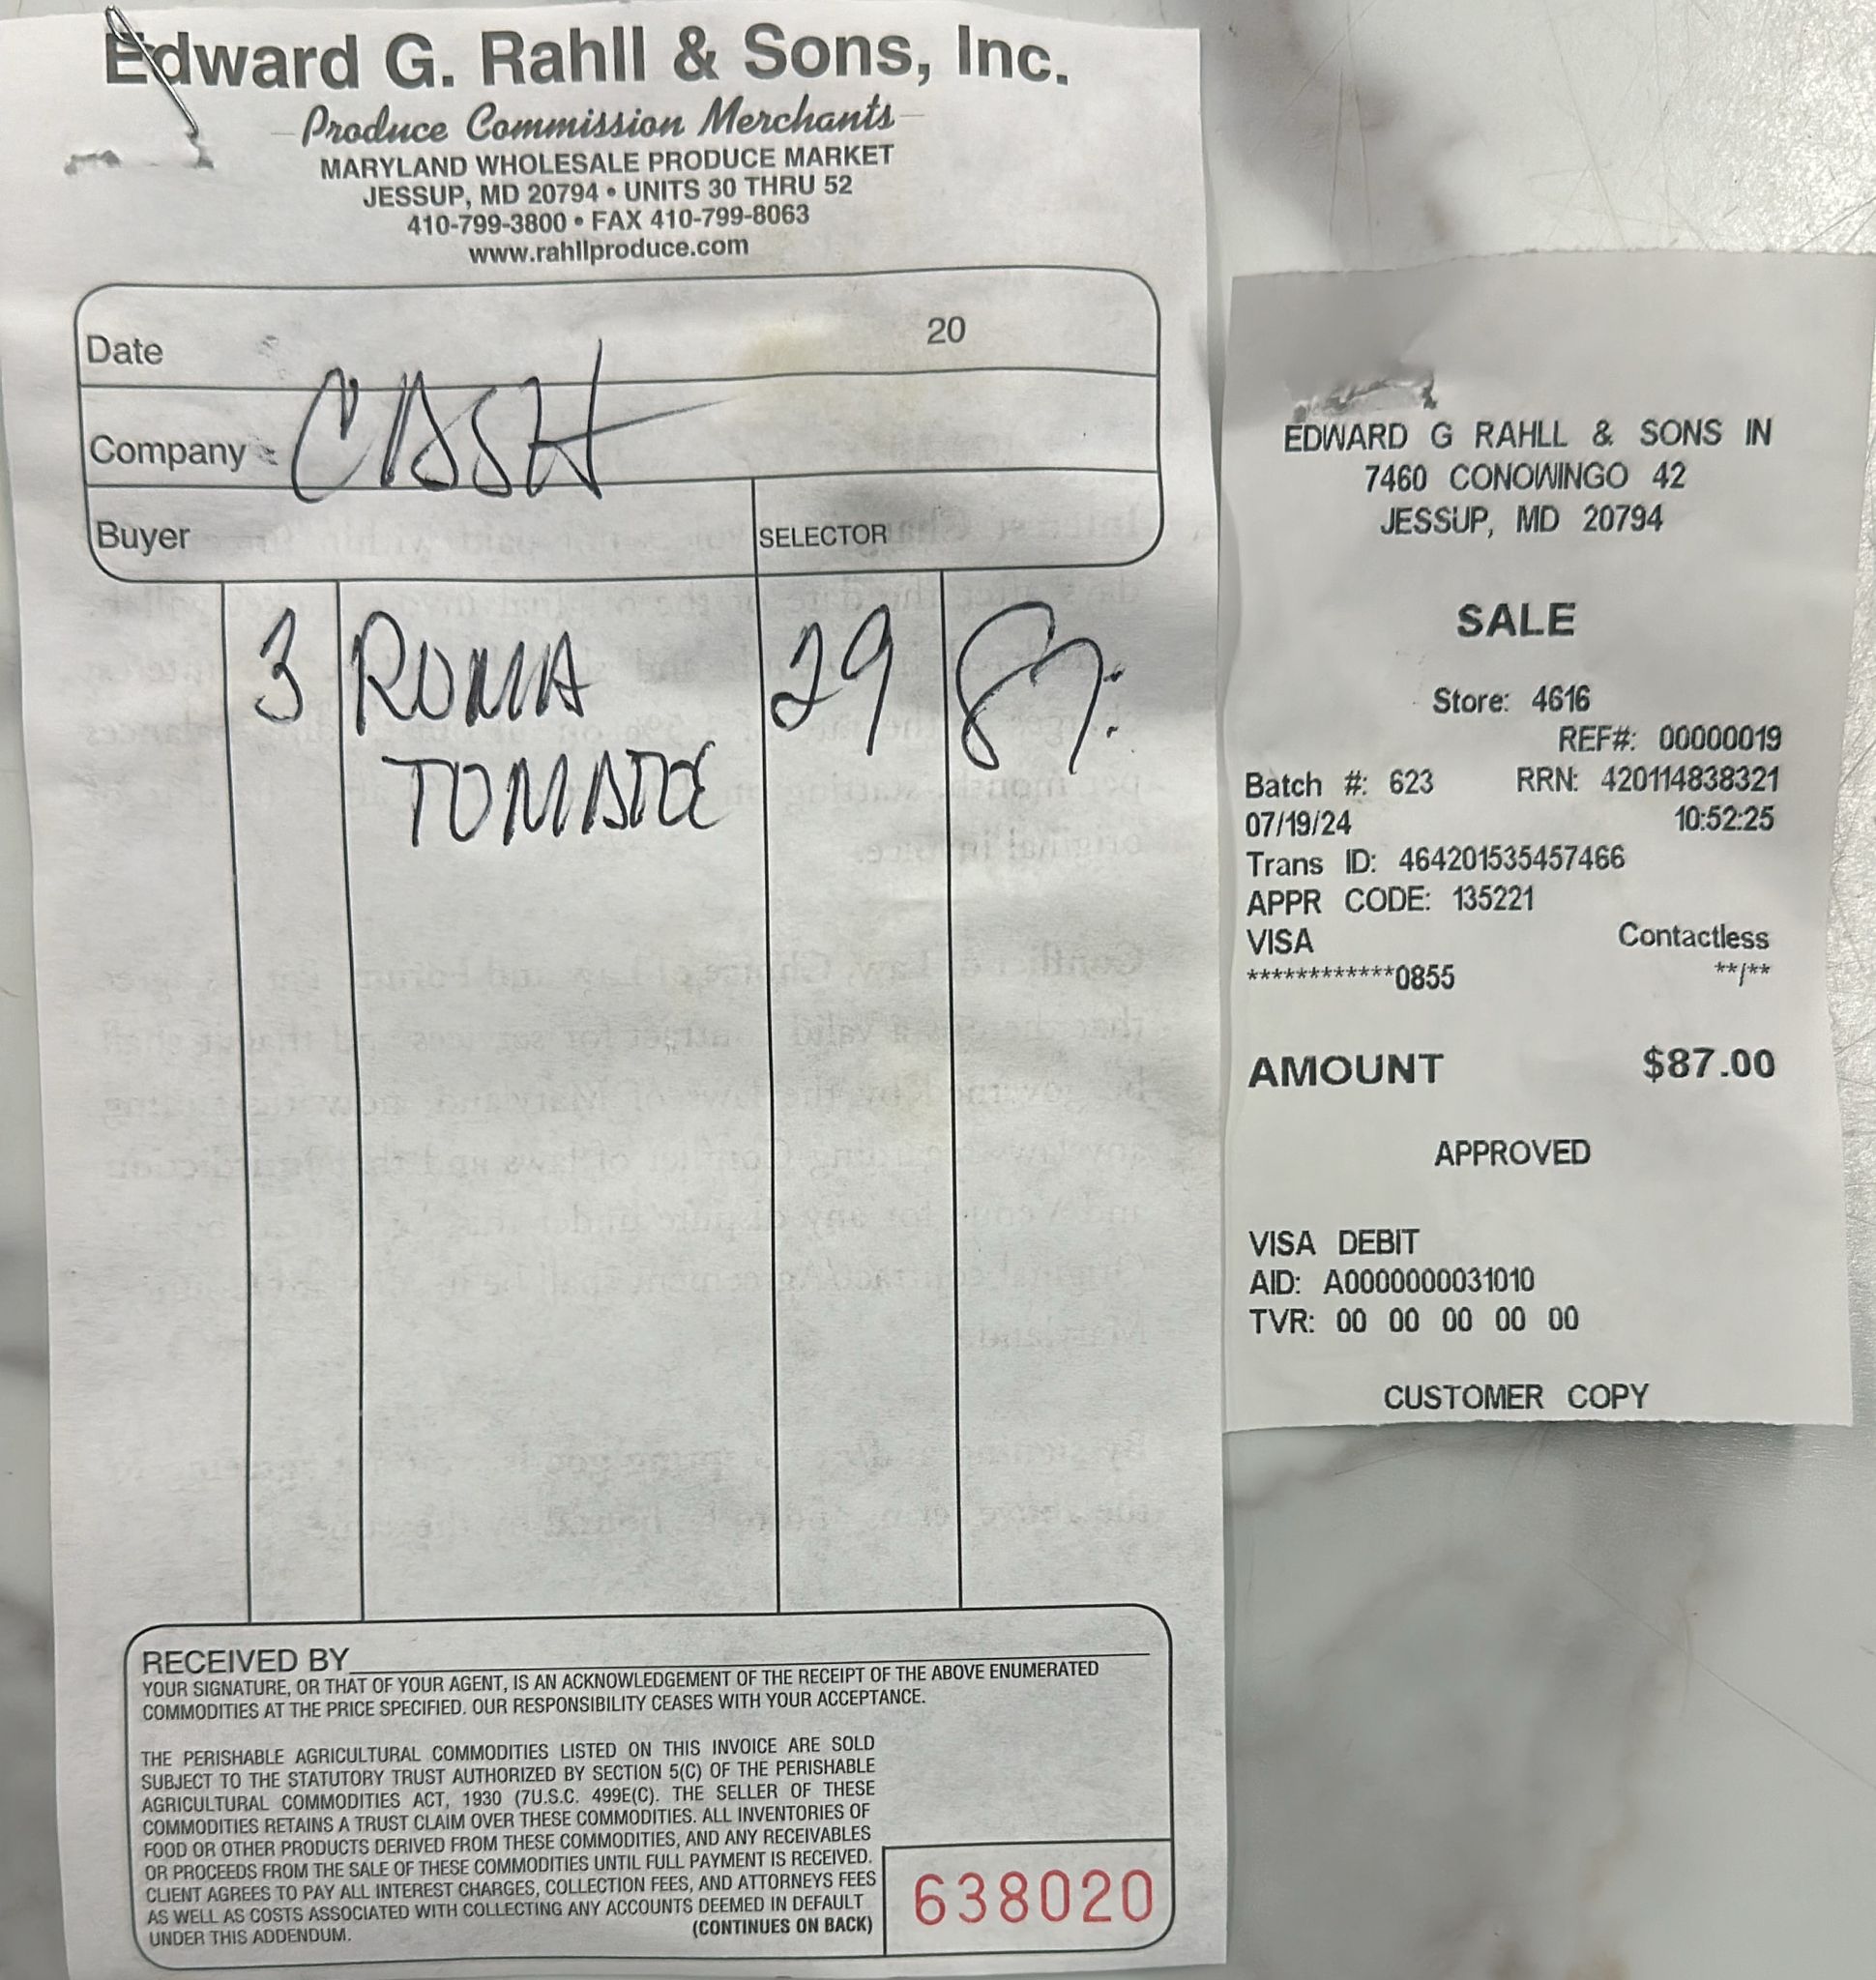 Edward G. Rahll & Sons, Inc.
Produce Commission Merchants
MARYLAND WHOLESALE PRODUCE MARKET
JESSUP, MD 20794 • UNITS 30 THRU 52
410-799-3800 • FAX 410-799-8063
www.rahllproduce.com
Date 20
Company CASH
Buyer SELECTOR
3 ROMA 29 87.
TOMATOE
RECEIVED BY
YOUR SIGNATURE, OR THAT OF YOUR AGENT, IS AN ACKNOWLEDGEMENT OF THE RECEIPT OF THE ABOVE ENUMERATED
COMMODITIES AT THE PRICE SPECIFIED. OUR RESPONSIBILITY CEASES WITH YOUR ACCEPTANCE.
THE PERISHABLE AGRICULTURAL COMMODITIES LISTED ON THIS INVOICE ARE SOLD
SUBJECT TO THE STATUTORY TRUST AUTHORIZED BY SECTION 5(C) OF THE PERISHABLE
AGRICULTURAL COMMODITIES ACT, 1930 (7U.S.C. 499E(C). THE SELLER OF THESE
COMMODITIES RETAINS A TRUST CLAIM OVER THESE COMMODITIES. ALL INVENTORIES OF
FOOD OR OTHER PRODUCTS DERIVED FROM THESE COMMODITIES, AND ANY RECEIVABLES
OR PROCEEDS FROM THE SALE OF THESE COMMODITIES UNTIL FULL PAYMENT IS RECEIVED.
CLIENT AGREES TO PAY ALL INTEREST CHARGES, COLLECTION FEES, AND ATTORNEYS FEES
AS WELL AS COSTS ASSOCIATED WITH COLLECTING ANY ACCOUNTS DEEMED IN DEFAULT
UNDER THIS ADDENDUM. (CONTINUES ON BACK)
638020
EDWARD G RAHLL & SONS IN
7460 CONOWINGO 42
JESSUP, MD 20794
SALE
Store: 4616
REF#: 00000019
Batch #: 623 RRN: 420114838321
07/19/24 10:52:25
Trans ID: 464201535457466
APPR CODE: 135221
VISA Contactless
************0855 **/**
AMOUNT $87.00
APPROVED
VISA DEBIT
AID: A0000000031010
TVR: 00 00 00 00 00
CUSTOMER COPY